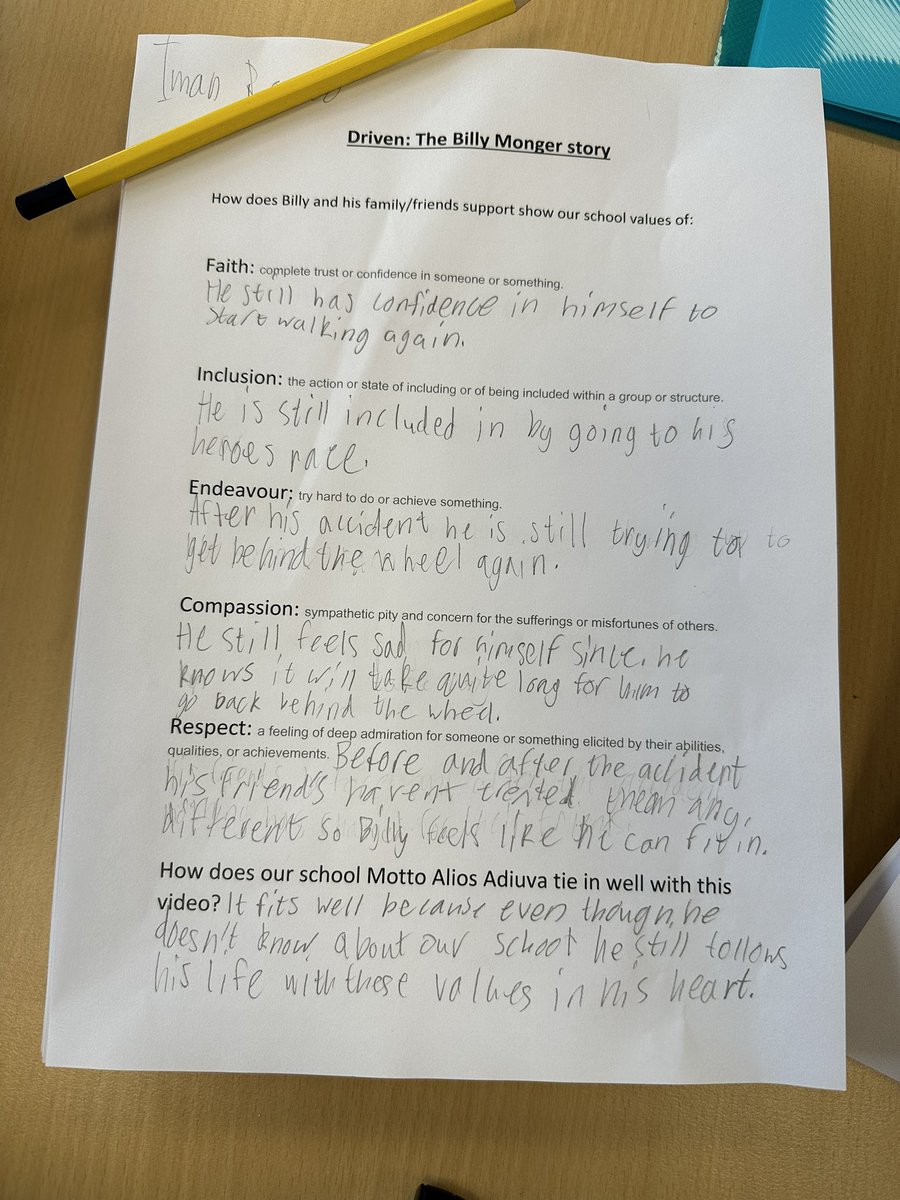 Iman
Driven: The Billy Monger story
How does Billy and his family/friends support show our school values of:
Faith: complete trust or confidence in someone or something.
He still has confidence in himself to
start walking again.
Inclusion: the action or state of including or of being included within a group or structure.
He is still included in by going to his
heroes race.
Endeavour: try hard to do or achieve something.
After his accident he is still trying to
get behind the wheel again.
Compassion: sympathetic pity and concern for the sufferings or misfortunes of others.
He still feels sad for himself since he
knows it will take quite long for him to
go back behind the wheel.
Respect: a feeling of deep admiration for someone or something elicited by their abilities,
qualities, or achievements. Before and after the accident
his friend's havent treated any
different so Billy feels like he can fit in.
How does our school Motto Alios Adiuva tie in well with this
video? It fits well because even though he
doesn't know about our school he still follows
his life with these values in his heart.